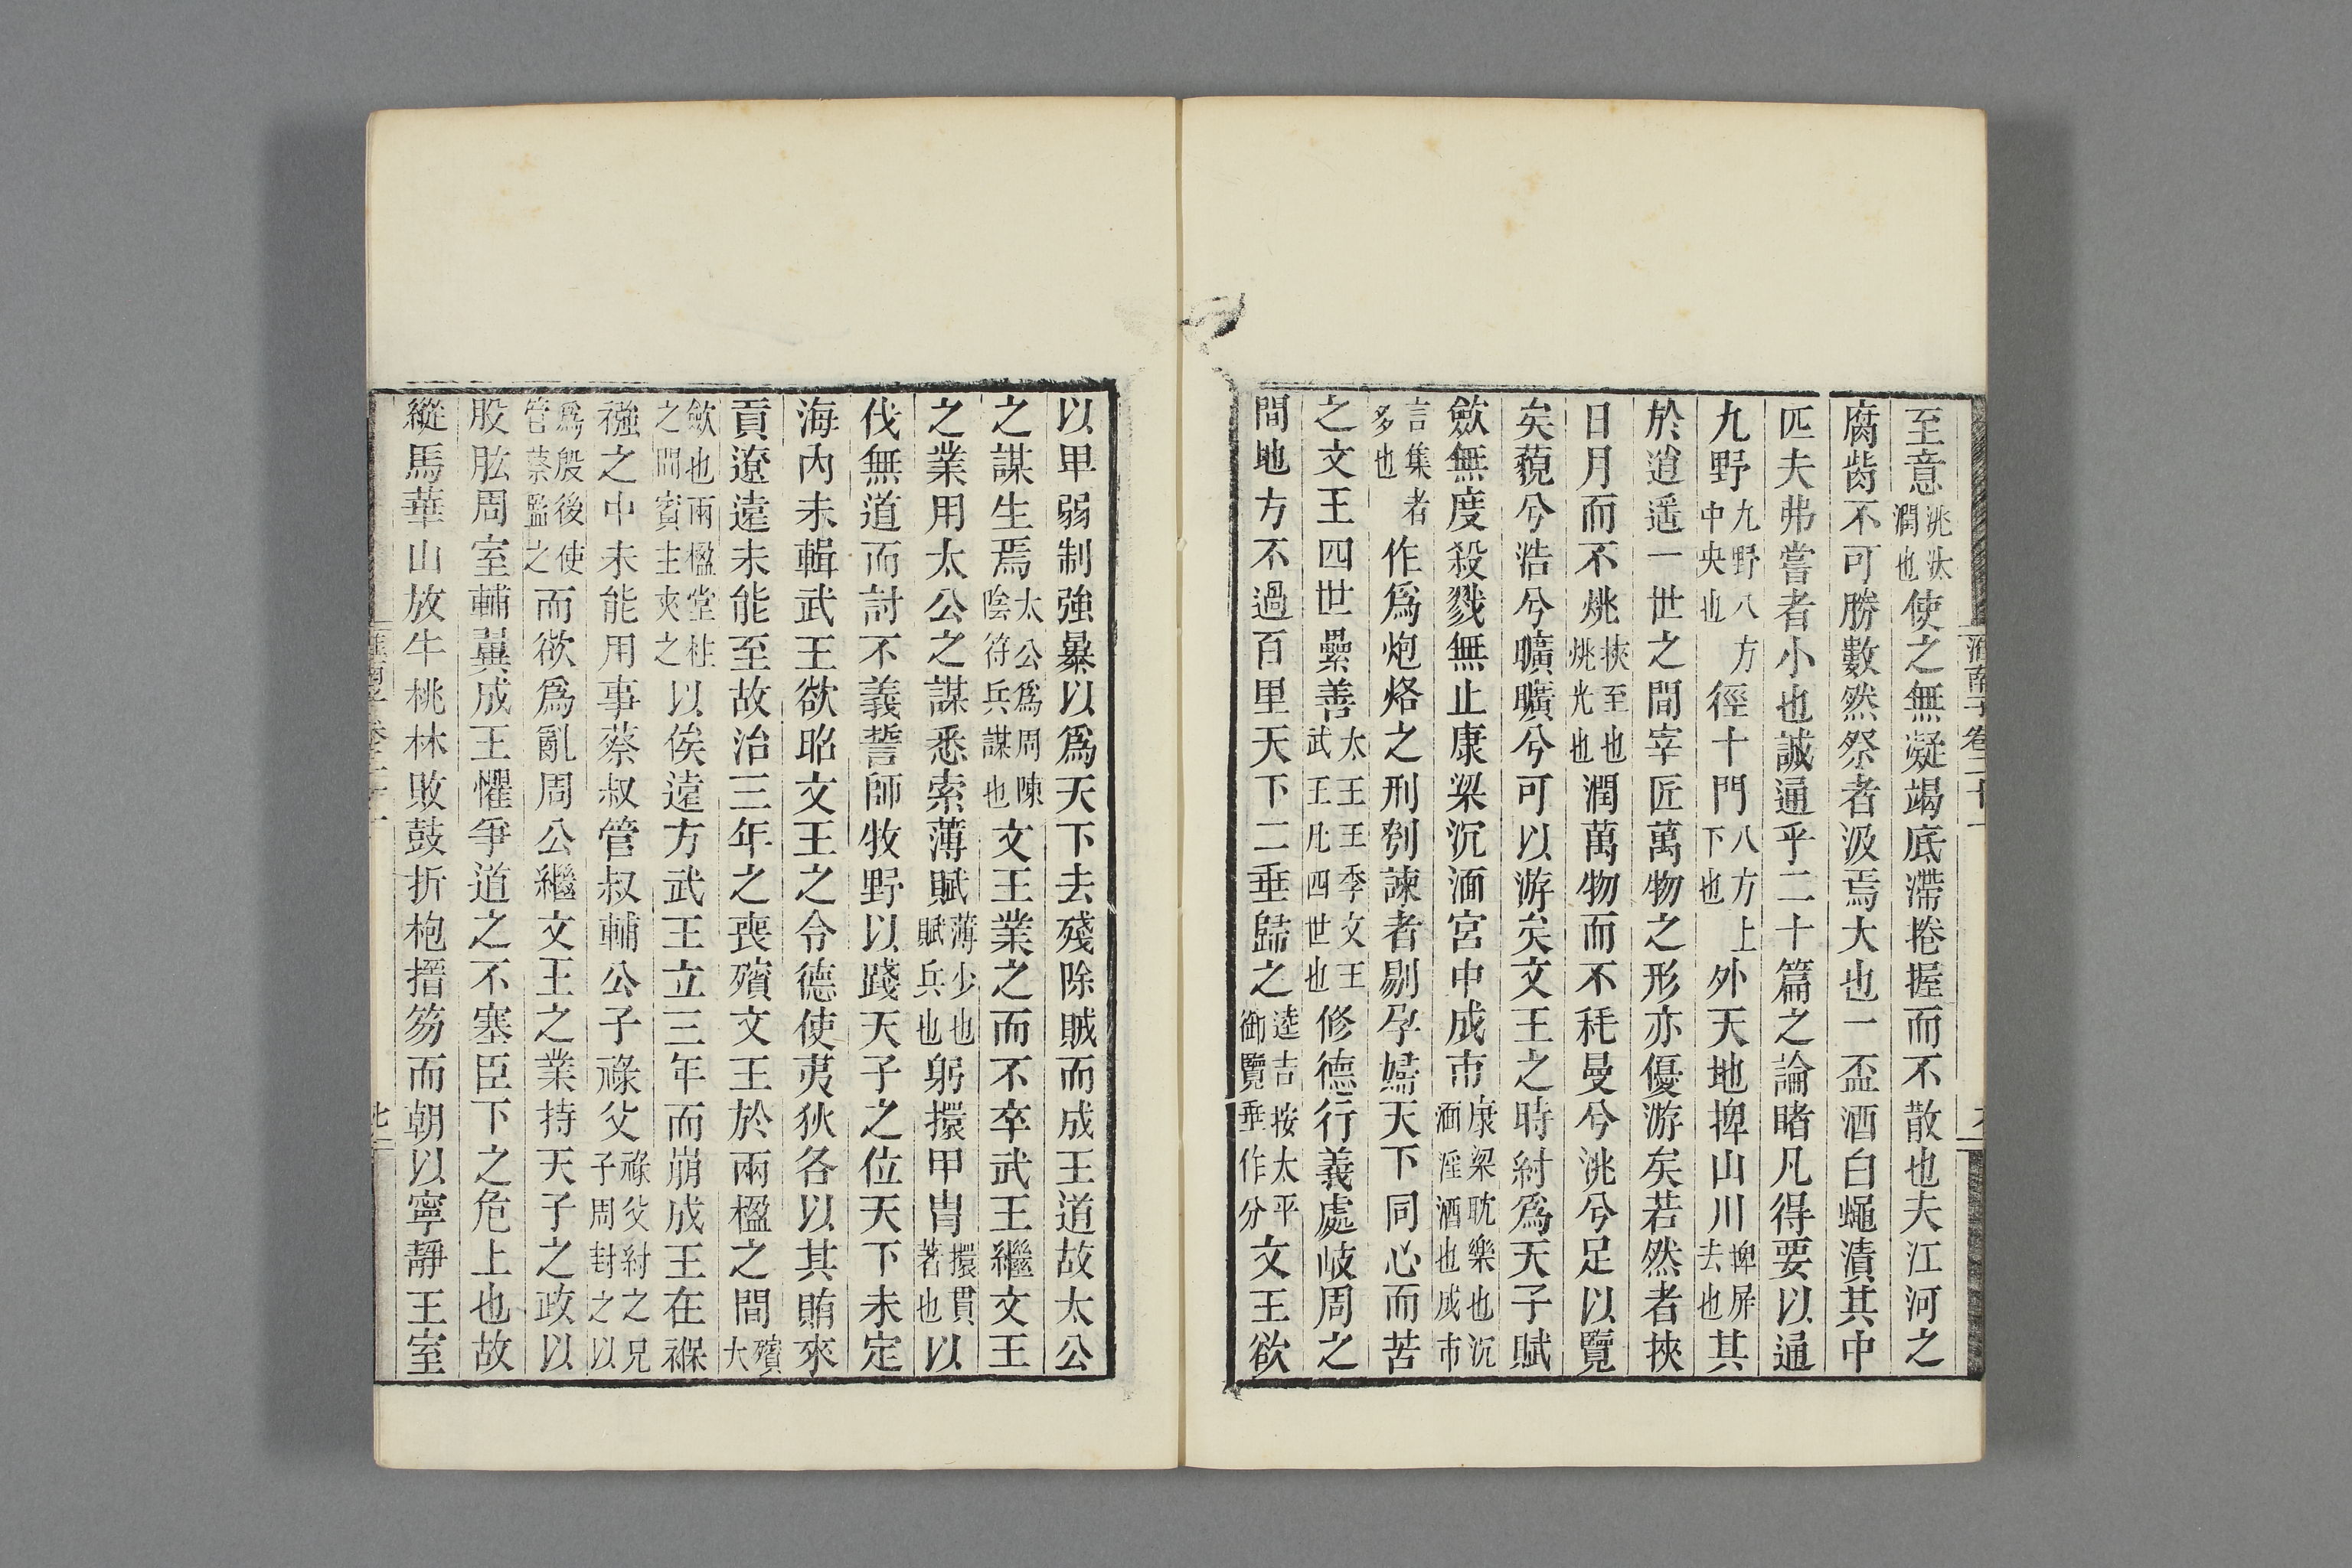 至意洮汰潤也使之無凝竭底滯捲握而不散也夫江河之
腐胔不可勝數然祭者汲焉大也一盃酒白蠅漬其中
匹夫弗嘗者小也誠通乎二十篇之論睹凡得要以通
九野九野八方中央也徑十門八方上下也外天地捭山川捭屏去也其
於逍遥一世之間宰匠萬物之形亦優游矣若然者挾
日月而不烑挾至也烑光也潤萬物而不秏曼兮洮兮足以覽
矣藐兮浩兮曠曠兮可以游矣文王之時紂爲天子賦
斂無度殺戮無止康梁沉湎宮中成市康梁耽樂也沉湎淫酒也成市
言集者多也作爲炮烙之刑刳諫者剔孕婦天下同心而苦
之文王四世纍善太王王季文王武王凡四世也修德行義處岐周之
間地方不過百里天下二垂歸之逵吉按太平御覽垂作分文王欲
以𤰞弱制強暴以爲天下去殘除賊而成王道故太公
之謀生焉太公爲周陳陰符兵謀也文王業之而不卒武王繼文王
之業用太公之謀悉索薄賦薄少也賦兵也躬擐甲冑擐貫著也以
伐無道而討不義誓師牧野以踐天子之位天下未定
海內未輯武王欲昭文王之令德使夷狄各以其賄來
貢遼遠未能至故治三年之喪殯文王於兩楹之間殯大
斂也兩楹堂柱之間賓主夾之以俟遠方武王立三年而崩成王在褓
襁之中未能用事蔡叔管叔輔公子祿父祿父紂之兄子周封之以
爲殷後使管蔡監之而欲爲亂周公繼文王之業持天子之政以
股肱周室輔翼成王懼爭道之不塞臣下之危上也故
縱馬華山放牛桃林敗鼓折枹搢笏而朝以寧靜王室
淮南子卷二十一